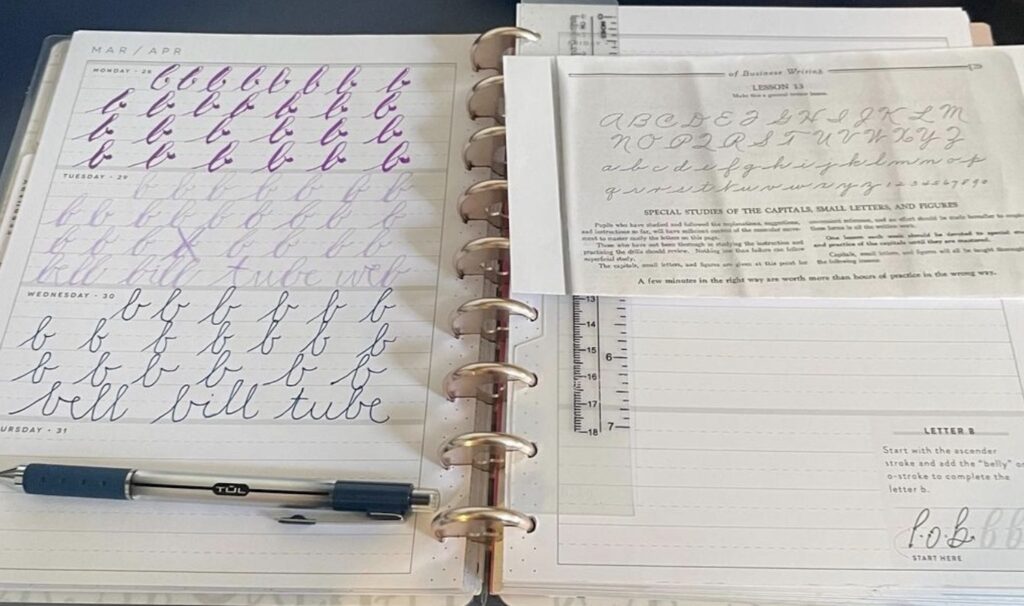 MAR / APR
MONDAY · 28
b b b b b b b b
b b b b b b
b b b b b b
b b b b b b
TUESDAY · 29
b b b b b b b
b b b b b b b b
b b b b b b b
bell bill tube web
WEDNESDAY · 30
b b b b b b b
b b b b b b b
b b b b b b
bell bill tube
URSDAY · 31
TUL
of Business Writing
LESSON 13
Make this a general review lesson.
A B C D E F G H I J K L M
N O P Q R S T U V W X Y Z
a b c d e f g h i j k l m n o p
q r s t u v w x y z 1 2 3 4 5 6 7 8 9 0
SPECIAL STUDIES OF THE CAPITALS, SMALL LETTERS, AND FIGURES
Pupils who have studied and followed the explanations, suggestions,
and instructions so far, will have sufficient control of the muscular move-
ment to master easily the letters on this page.
Those who have not been thorough in studying the instruction and
practicing the drills should review. Nothing less than failure can follow
superficial study.
The capitals, small letters, and figures are given at this point for
One lesson each week should be devoted to special
and practice of the capitals until they are mastered.
Capitals, small letters, and figures will be taught
the following lessons
A few minutes in the right way are worth more than hours of practice in the wrong way.
13
14
15
16
17
18
6
7
LETTER B
Start with the ascender
stroke and add the "belly" or
o-stroke to complete the
letter b.
l·o·b b b
START HERE